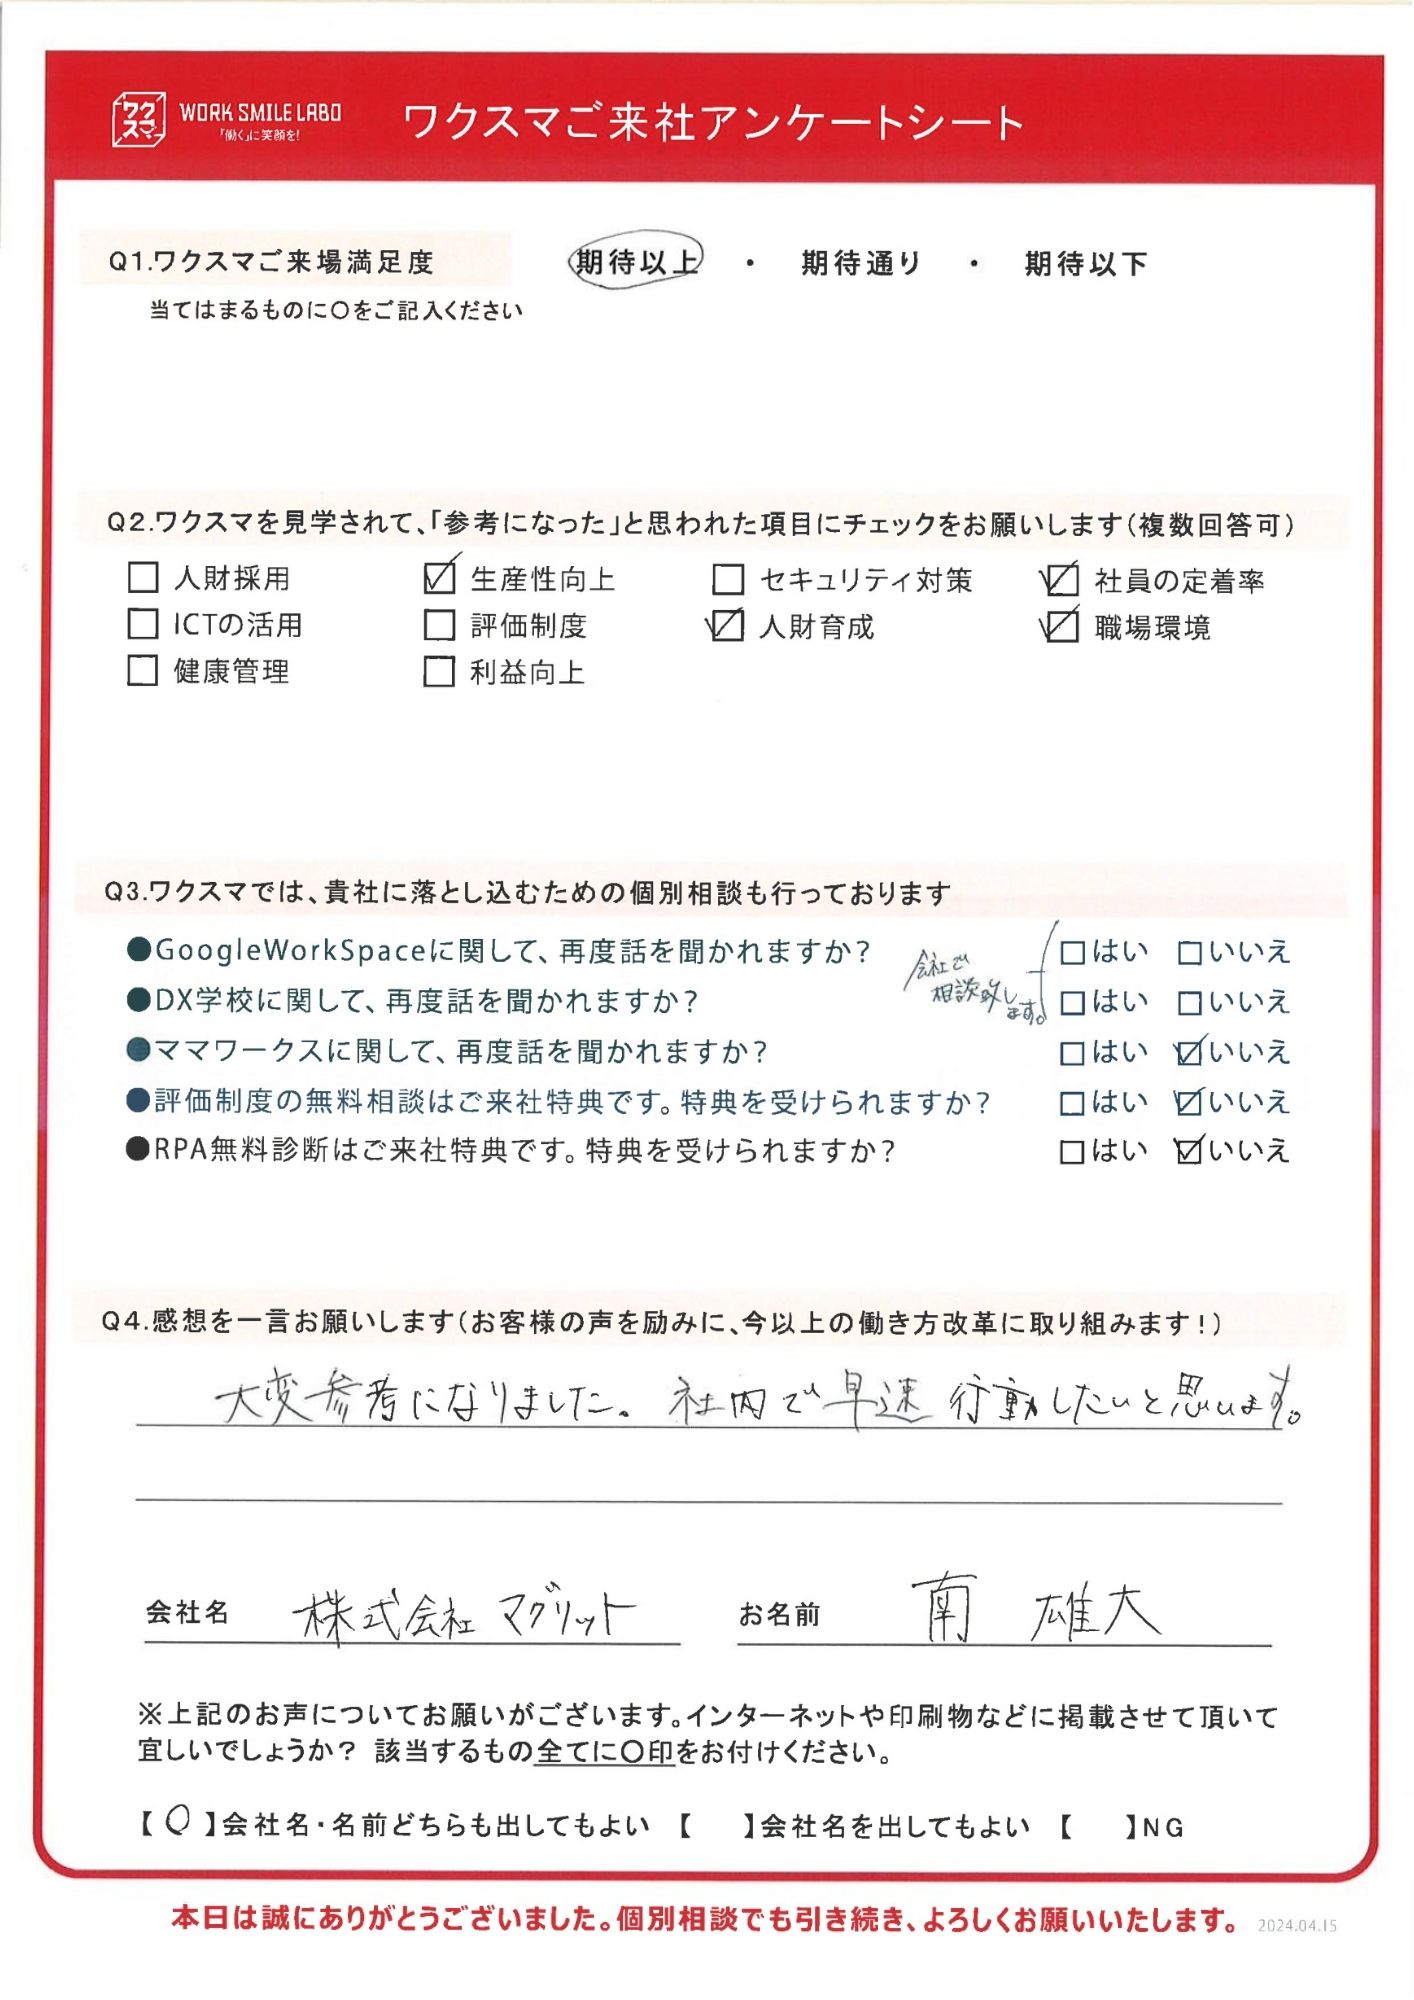 ワクスマ WORK SMILE LABO 『働く』に笑顔を! ワクスマご来社アンケートシート
Q1.ワクスマご来場満足度 期待以上 ・ 期待通り ・ 期待以下
当てはまるものに〇をご記入ください
Q2.ワクスマを見学されて、「参考になった」と思われた項目にチェックをお願いします(複数回答可)
□ 人財採用 ☑ 生産性向上 □ セキュリティ対策 ☑ 社員の定着率
□ ICTの活用 □ 評価制度 ☑ 人財育成 ☑ 職場環境
□ 健康管理 □ 利益向上
Q3.ワクスマでは、貴社に落とし込むための個別相談も行っております
●GoogleWorkSpaceに関して、再度話を聞かれますか? □はい □いいえ
会社で
相談致します。
●DX学校に関して、再度話を聞かれますか? □はい □いいえ
●ママワークスに関して、再度話を聞かれますか? □はい ☑いいえ
●評価制度の無料相談はご来社特典です。特典を受けられますか? □はい ☑いいえ
●RPA無料診断はご来社特典です。特典を受けられますか? □はい ☑いいえ
Q4.感想を一言お願いします(お客様の声を励みに、今以上の働き方改革に取り組みます!)
大変参考になりました。社内で早速行動したいと思います。
会社名 株式会社マグリット お名前 南 雄大
※上記のお声についてお願いがございます。インターネットや印刷物などに掲載させて頂いて
宜しいでしょうか? 該当するもの全てに〇印をお付けください。
【〇】会社名・名前どちらも出してもよい 【 】会社名を出してもよい 【 】NG
本日は誠にありがとうございました。個別相談でも引き続き、よろしくお願いいたします。 2024.04.15